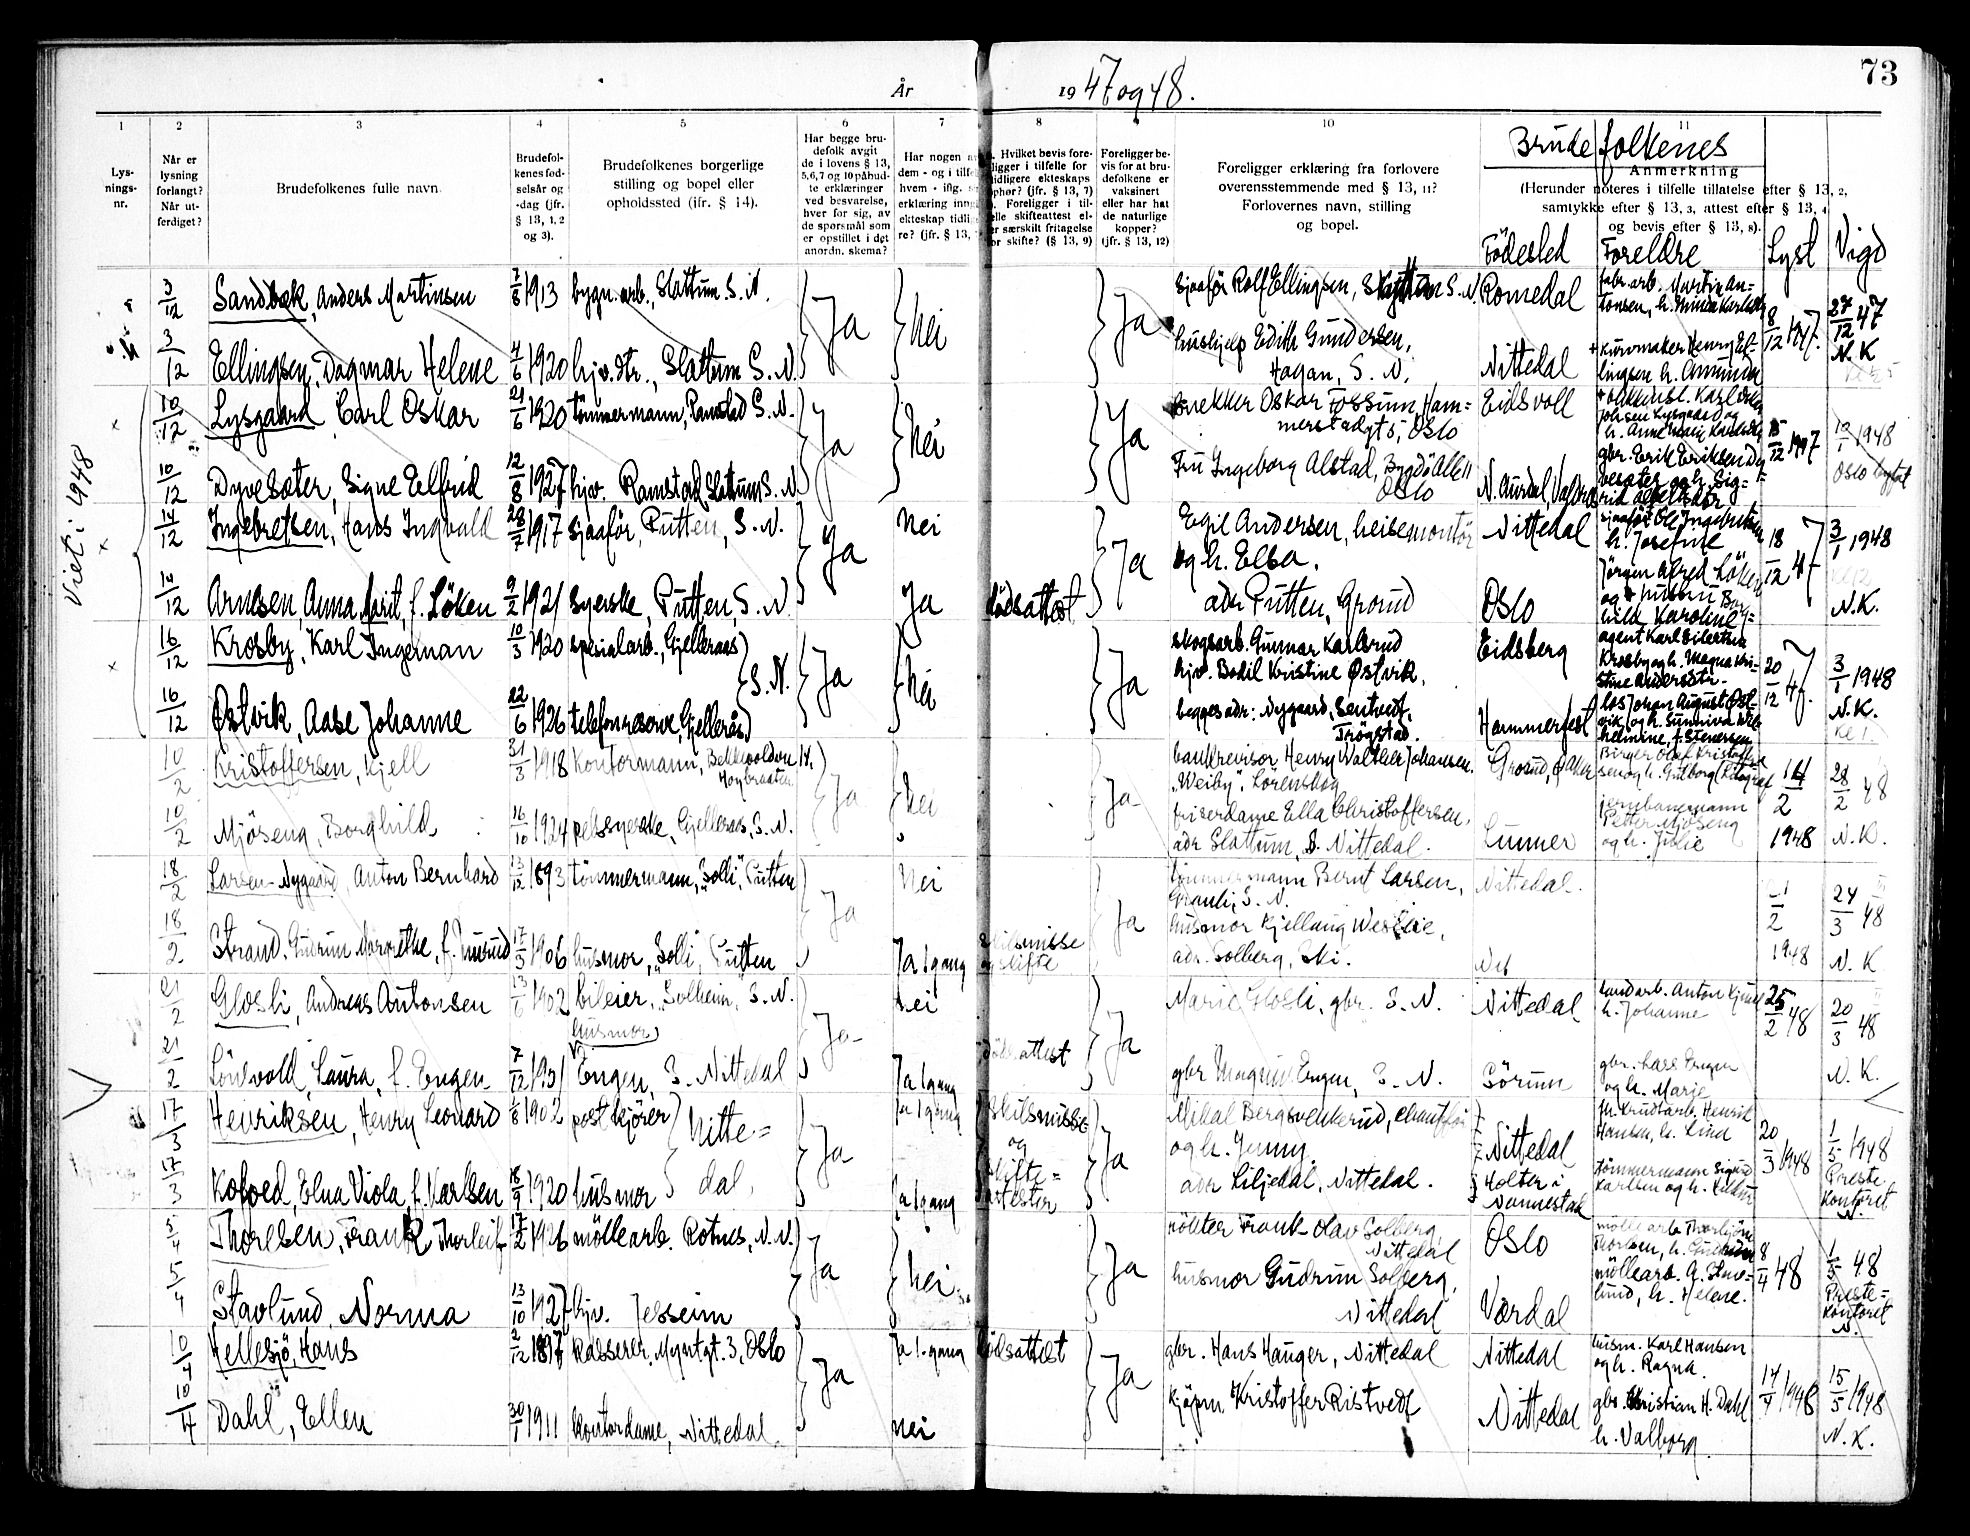 73
År 1947 og 48.
1 2 3 4 5 6 7 8 9 10 11
Lysningsnr.
Når er lysning forlangt? Når utferdiget?
Brudefolkenes fulle navn.
Brudefolkenes fødselsår og -dag (jfr. § 13, 1, 2 og 3).
Brudefolkenes borgerlige stilling og bopel eller opholdssted (ifr. § 14).
Har begge brudefolk avgit de i lovens § 13, 5,6,7 og 10 påbudte erklæringer ved besvarelse, hver for sig, av de spørsmål som er opstillet i det anordn. skema?
Har nogen a
dem - og i tilf
hvem - iflg.
erklæring inng
ekteskap tidli
re? (jfr. § 13,
Hvilket bevis fore-
ligger i tilfelle for
tidligere ekteskaps
ophør? (jfr. § 13, 7)
Foreligger i til-
felle skifteattest el-
er særskilt fritagelse
for skifte? (§ 13, 9)
Foreligger bevis for at brudefolkene er vaksinert eller har hat de naturlige kopper? (jfr. § 13, 12)
Foreligger erklæring fra forlovere overensstemmende med § 13, 11? Forlovernes navn, stilling og bopel.
Brudefolkenes
Anmerkning
(Herunder noteres i tilfelle tillatelse efter § 13, 2, samtykke efter § 13, 3, attest efter § 13, 4 og bevis efter § 13, 8).
Födested Foreldre Lyst Vigd
Viet i 1948
3/12 Sandbæk, Anders Martinsen 7/8 1913 bygn. arb., Slattum. S. N. Ja Nei Ja
sjåför Rolf Ellingsen, Slattum S. N. Romedal
fabr. arb. Martin An=
tonsen, h.
8/12 1947. 27/12 47
N. K
3/12 Ellingsen, Dagmar Helene 4/6 1920 hjv. str., Slattum S. N.
hushjelp Edith Gundersen,
Hagan, S. N. Nittedal
kurvmaker Henry El-
lingsen h.
10/12 Lysgaard, Carl Oskar 21/6 1920 tömmermann, Ramstad S. N. Ja Nei Ja
snekker Oskar Fossum, Ham=
merstadgt 5, Oslo Eidsvoll
Karl Oskar
Johsen Lysgaard og
h. Anne Marie
15/12 1947 10/1 1948
Oslo
10/12 Dyvesæter, Signe Elfrid 12/8 1927 hjv. Ramstad, Slattum S. N.
Fru Ingeborg Alstad, Bygdö Alle 11
Oslo N. Aurdal, Valdres
gbr. Erik Eriksen Dy
vesæter og h. Sig=
rid
14/12 Ingebretsen, Hans Ingvald 28/7 1917 sjaaför, Putten, S. N. Ja Nei Ja
Egil Andersen, heisemontör
og h. Elsa.
adr Putten, Grorud Nittedal
sjaaför Ole Ingebretsen
h. Josefine
18/12 47 3/1 1948
N. K.
14/12 Arnesen, Anna Marit, f. Löken 9/2 1921 syerske, Putten, S. N. Ja dödsattest
Oslo
Jörgen Alfred Löken
og husmor Bor
hild Karoline
16/12 Krosby, Karl Ingeman 10/3 1920 spesialarb., Gjelleraas S. N. Ja Nei Ja
skogsarb. Gunnar Karlsrud
hjv. Bodil Kristine Østvik,
begges adr: Nygaard, Sentvedt,
Trögstad. Eidsberg
agent Karl
Krosby og h. Magna Kri-
stine
20/12 47. 3/1 1948
N. K.
16/12 Østvik, Aase Johanne 22/6 1926 telefonreserve, Gjelleraas
Hammerfest
los Johan August Øst-
vik, og h. Sunniva Wil-
helmine, f. Stenersen
10/2 Kristoffersen, Kjell 31/3 1918 kontormann, Bekkevoldvn 14,
Höybraaten Ja Nei Ja
bankrevisor Henry Walther Johansen.
"Weiby", Lörenskog Grorud,
Birger Olaf Kristoffer
sen og h.
14/2 1948 28/2 48
N. K.
10/2 Mjöseng, Borghild 16/10 1924 pelssyerske, Gjelleraas, S. N.
friserdame Ella Christoffersen,
adr Slattum, S. Nittedal. Lunner
jernbanemann
Petter Mjöseng
og h. Julie
18/2 Larsen-Nygaard, Anton Bernhard 13/12 1893 tömmermann, "Solli", Putten Ja Nei Ja
tömmermann Bernt Larsen,
S. N. Nittedal.
2 1948 24/3 48
N. K
18/2 Strand, Gudrun Margrethe, f. 17/5 1906 husmor, "Solli", Putten Ja 1 gang skilsmisse
og skifte
husmor Kjellaug
adr. Solberg, Ski. Nit
21/2 Glosli, Andreas Antonsen 13/6 1902 bileier, "Solheim", S. N. Ja Nei Ja
Marie Glosli, gbr. S. N. Nittedal
landarb. Anton
h. Johanne
25/2 48 20/3 48
N. K.
21/2 Lönvold, Laura, f. Engen 7/12 1901 husmor Engen, S. Nittedal Ja 1 gang dödsattest
gbr Magnus Engen, S. N. Sörum
gbr. Lars Engen
og h. Marie
17/3 Henriksen, Henry Leonard 1/8 1902 postkjörer Nitte=
dal, Ja Ja 1 gang skilsmisse
og
skifte=
attester Ja
Mikal Bergsvenkerud,
og h. Jenny.
adr Liljedal, Nittedal. Nittedal
Henrik
Hansen, h.
20/3 1948 1/5 1948
Preste
kontoret
N.
17/3 Kofoed, Elna Viola, f. Karlsen 18/9 1920 husmor Ja 1 gang
Holter i
Nannestad
tömmermann Sigurd
Karlsen og h.
5/4 Thorlsen, Frank Thorleif 17/2 1926 möllearb. Rotnes, N. N. Ja Nei Ja
Frank Olav Solberg,
Nittedal Oslo
möllearb Thorbjörn
Thorlsen, h. Gudrun
8/4 48 1/5 48
Preste=
kontoret
N.
5/4 Stavlund, Norma 13/10 1927 hjv. Jessheim
husmor Gudrun Solberg,
Nittedal Værdal
möllearb. G. Stav=
lund, h. Helene.
10/4 Hellesjö, Hans 2/12 1897 kasserer, Myntgt. 3, Oslo Ja Ja 1. gang dödsattest Ja
gbr. Hans Hauger, Nittedal Nittedal
husm. Karl Hansen
og h. Ragna.
14/4 1948 15/5 1948
N. K.
10/4 Dahl, Ellen 30/7 1911 kontordame, Nittedal Nei
kjöpm Kristoffer Ristvedt Nittedal
gbr. Christian H. Dahl
h. Valborg